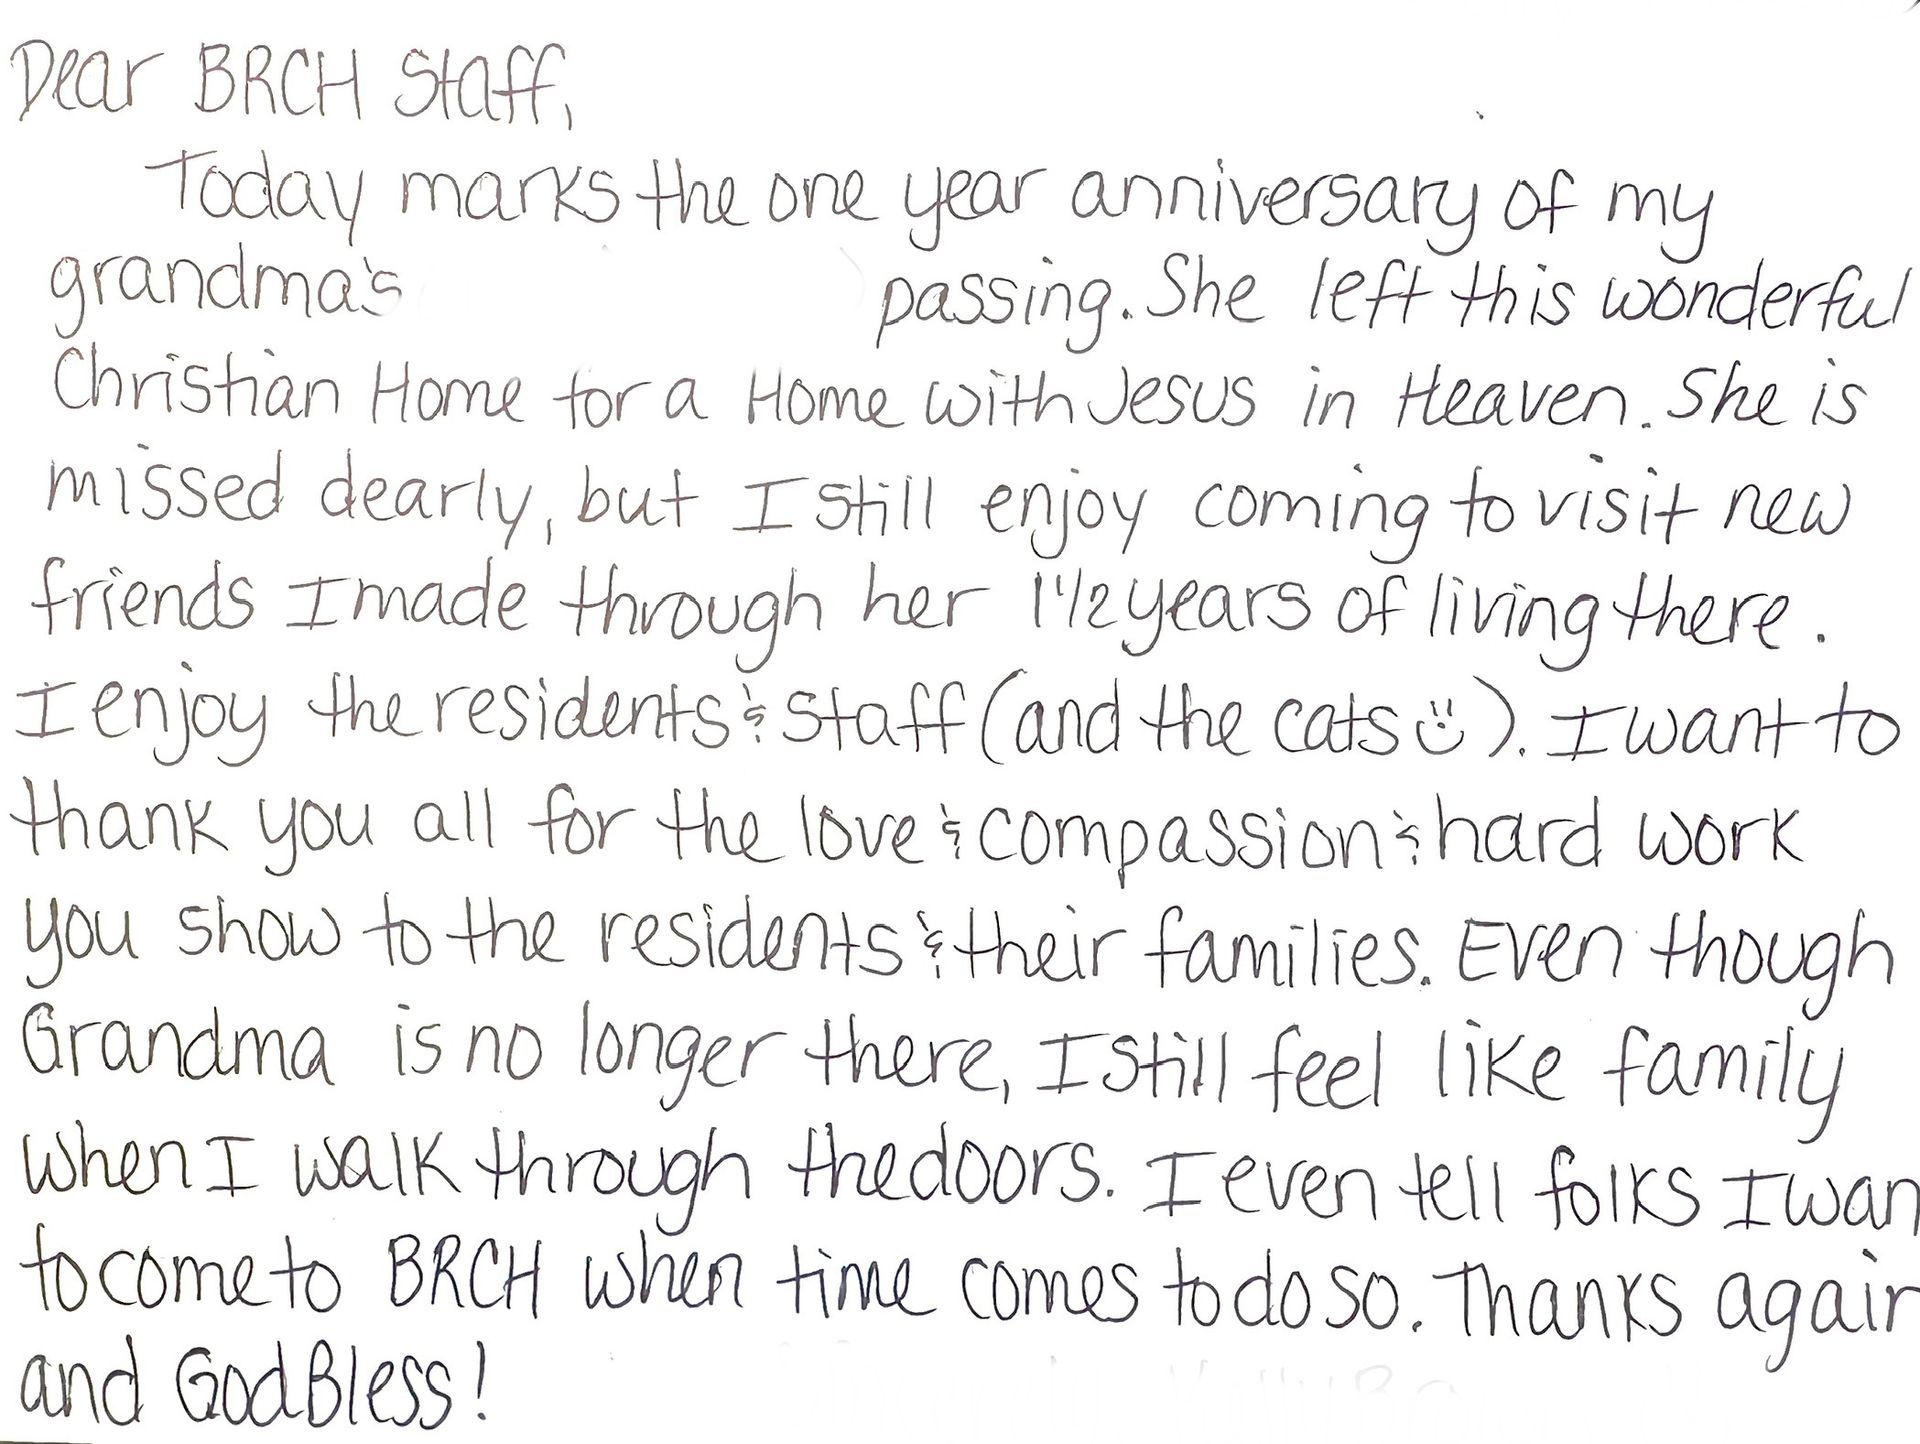 Dear BRCH Staff,
Today marks the one year anniversary of my
grandma's passing. She left this wonderful
Christian Home for a Home with Jesus in Heaven. She is
missed dearly, but I still enjoy coming to visit new
friends I made through her 1 1/2 years of living there.
I enjoy the residents & staff (and the cats ☺). I want to
thank you all for the love & compassion & hard work
you show to the residents & their families. Even though
Grandma is no longer there, I still feel like family
when I walk through the doors. I even tell folks I wan
to come to BRCH when time comes to do so. Thanks again
and God Bless!